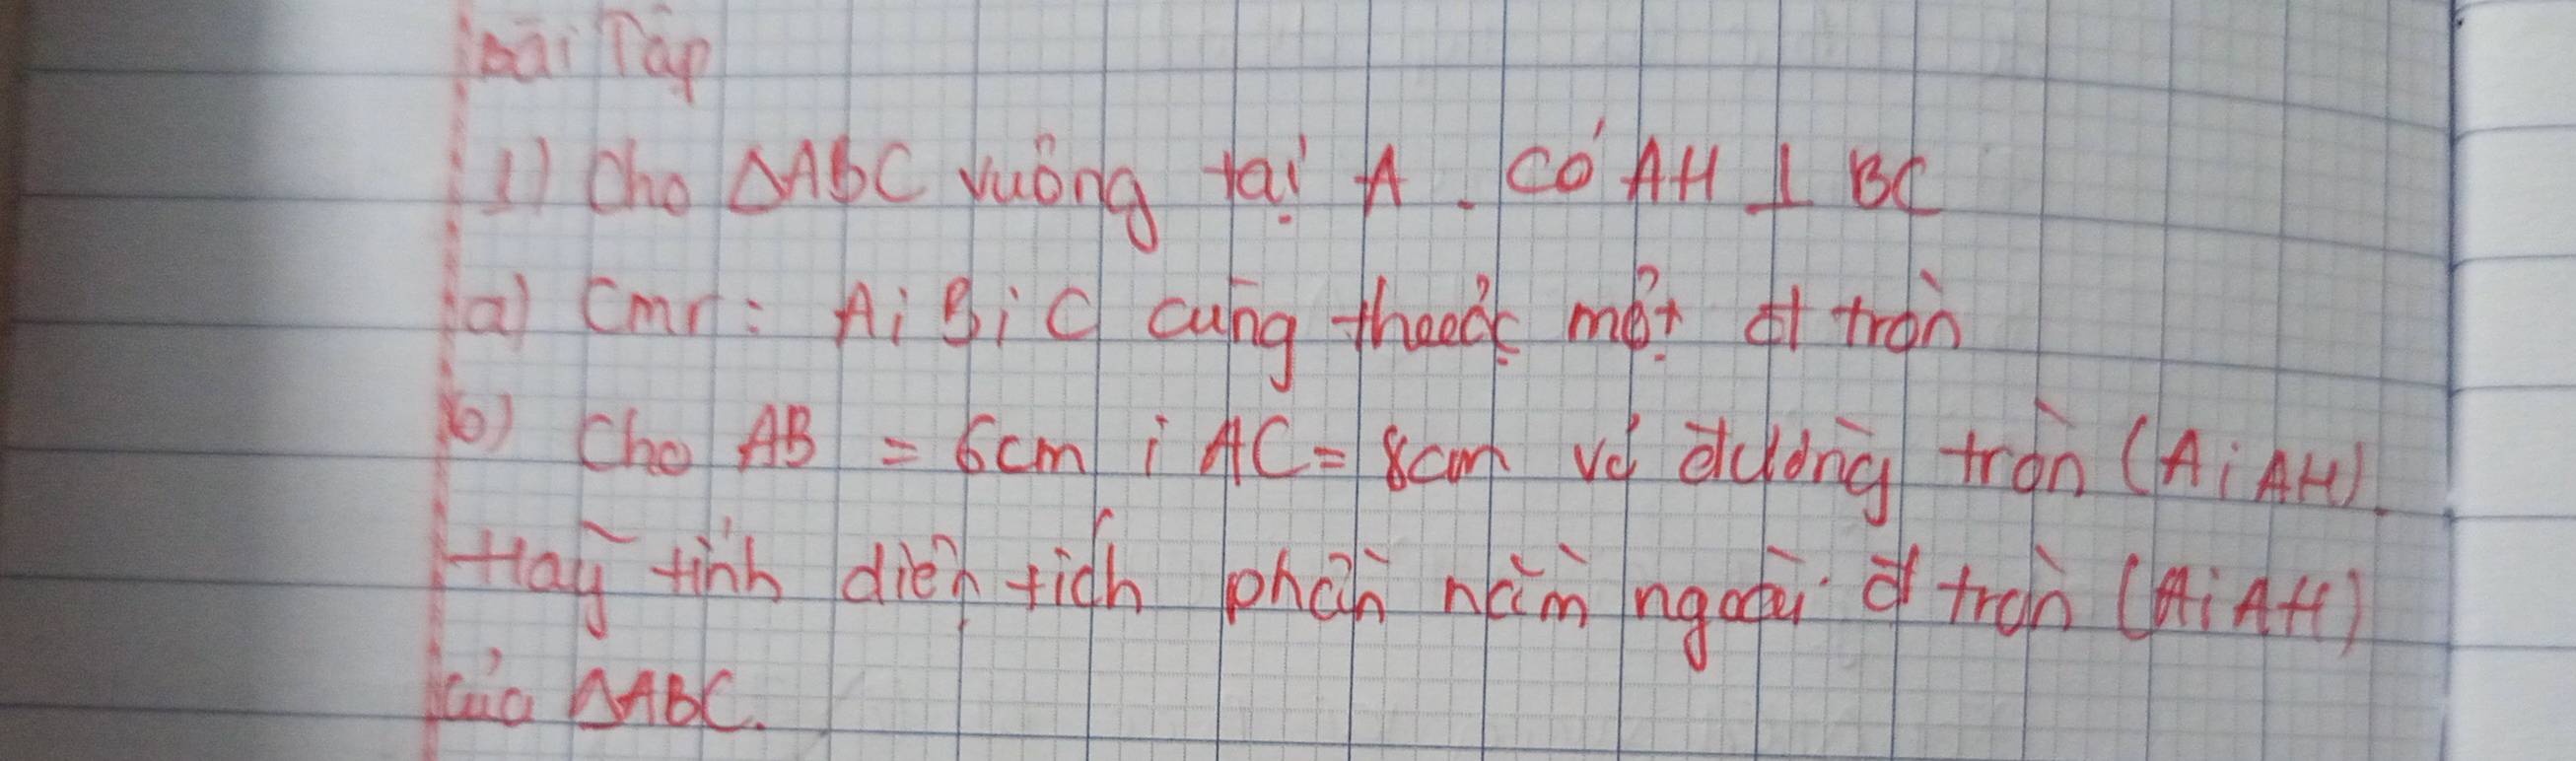 Bài Tập
1) Cho ΔABC vuông tại A. Có AH ⊥ BC
a) Cmr: A; B; C cùng thuộc một đt tròn
b) Cho AB = 6cm; AC = 8cm vẽ đường tròn (A; AH).
Hãy tính diện tích phần nằm ngoài đt tròn (A; AH)
của ΔABC.